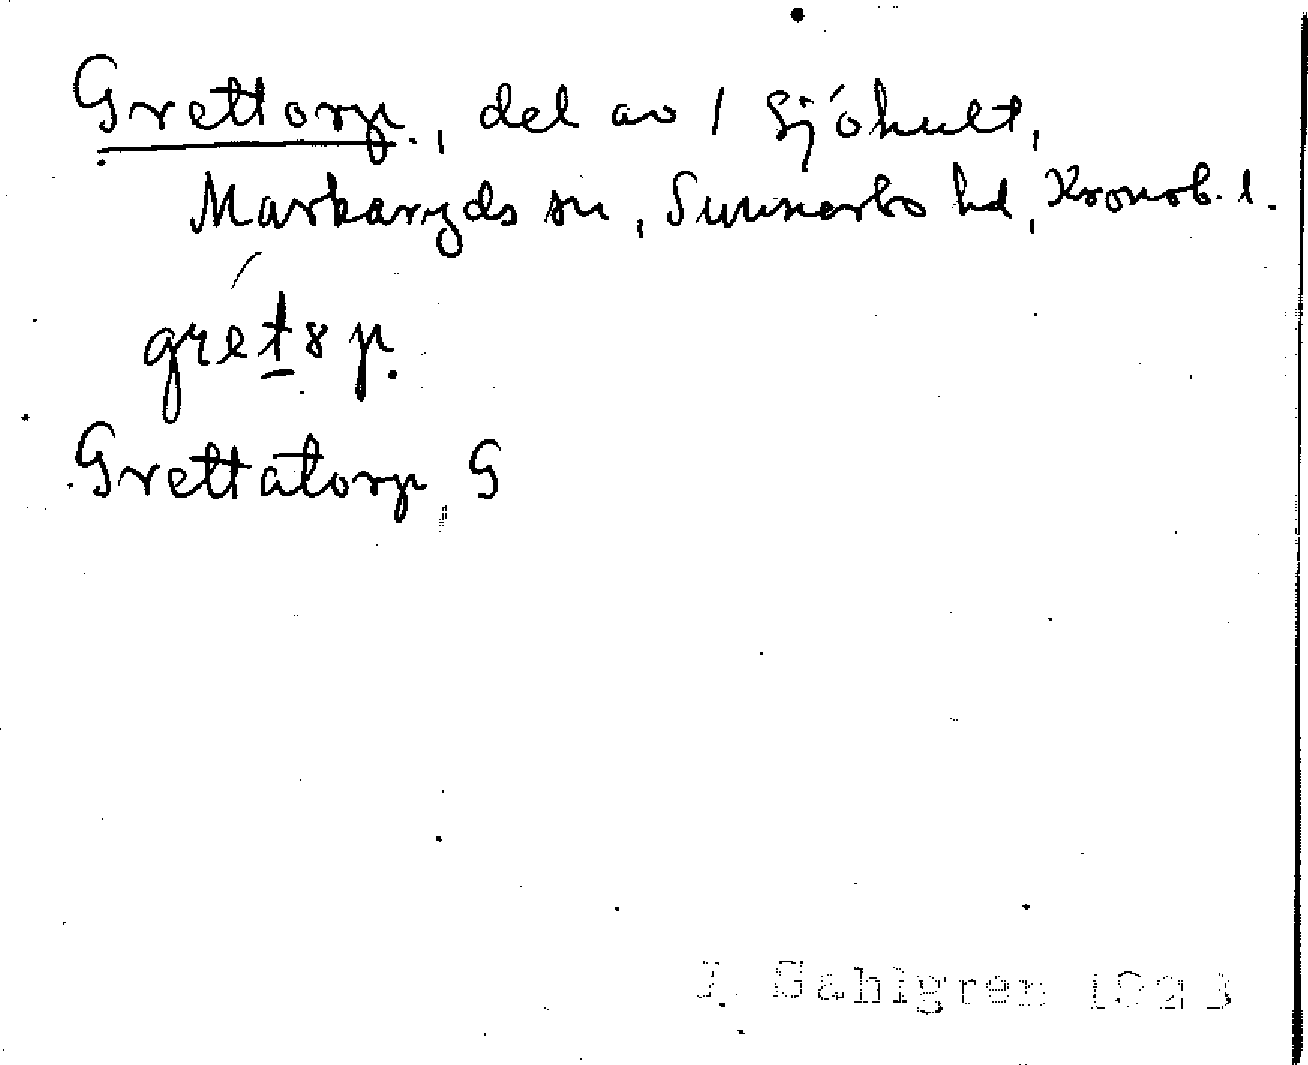 Grettorp., del av 1 Sjöhult,
Markaryds sn, Sunnerbo hd, Kronob. l.
Grettatorp, G
J. Sahlgren 1923